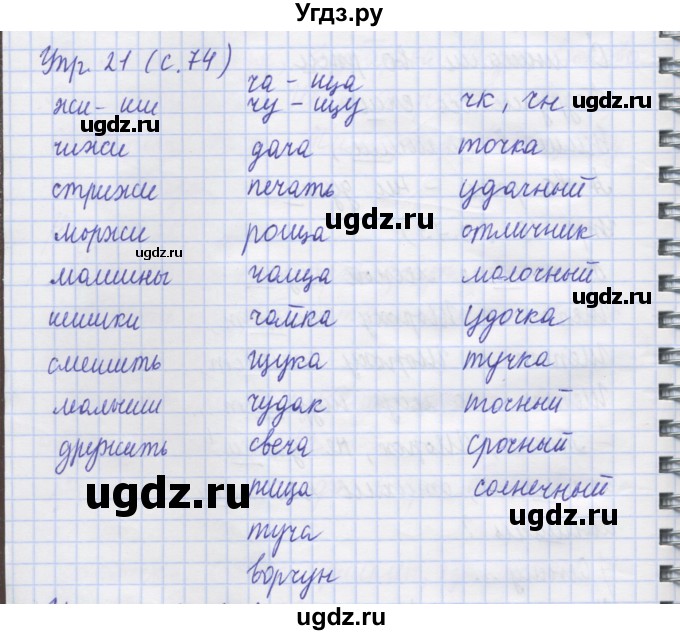 Угдз.ру
Упр. 21 (с. 74)
ча - ща
жи - ши чу - щу чк, чн
ugdz.ru ugdz.ru
чижи дача точка
стрижи печать удачный
ugdz.ru
моржи роща отличник
машины чаща молочный
ugdz.ru
шишки чайка удочка
смешить щука тучка
малыши чудак точный
дружить свеча срочный
пища солнечный
ugdz.ru ugdz.ru
туча
ворчун
ugdz.ru